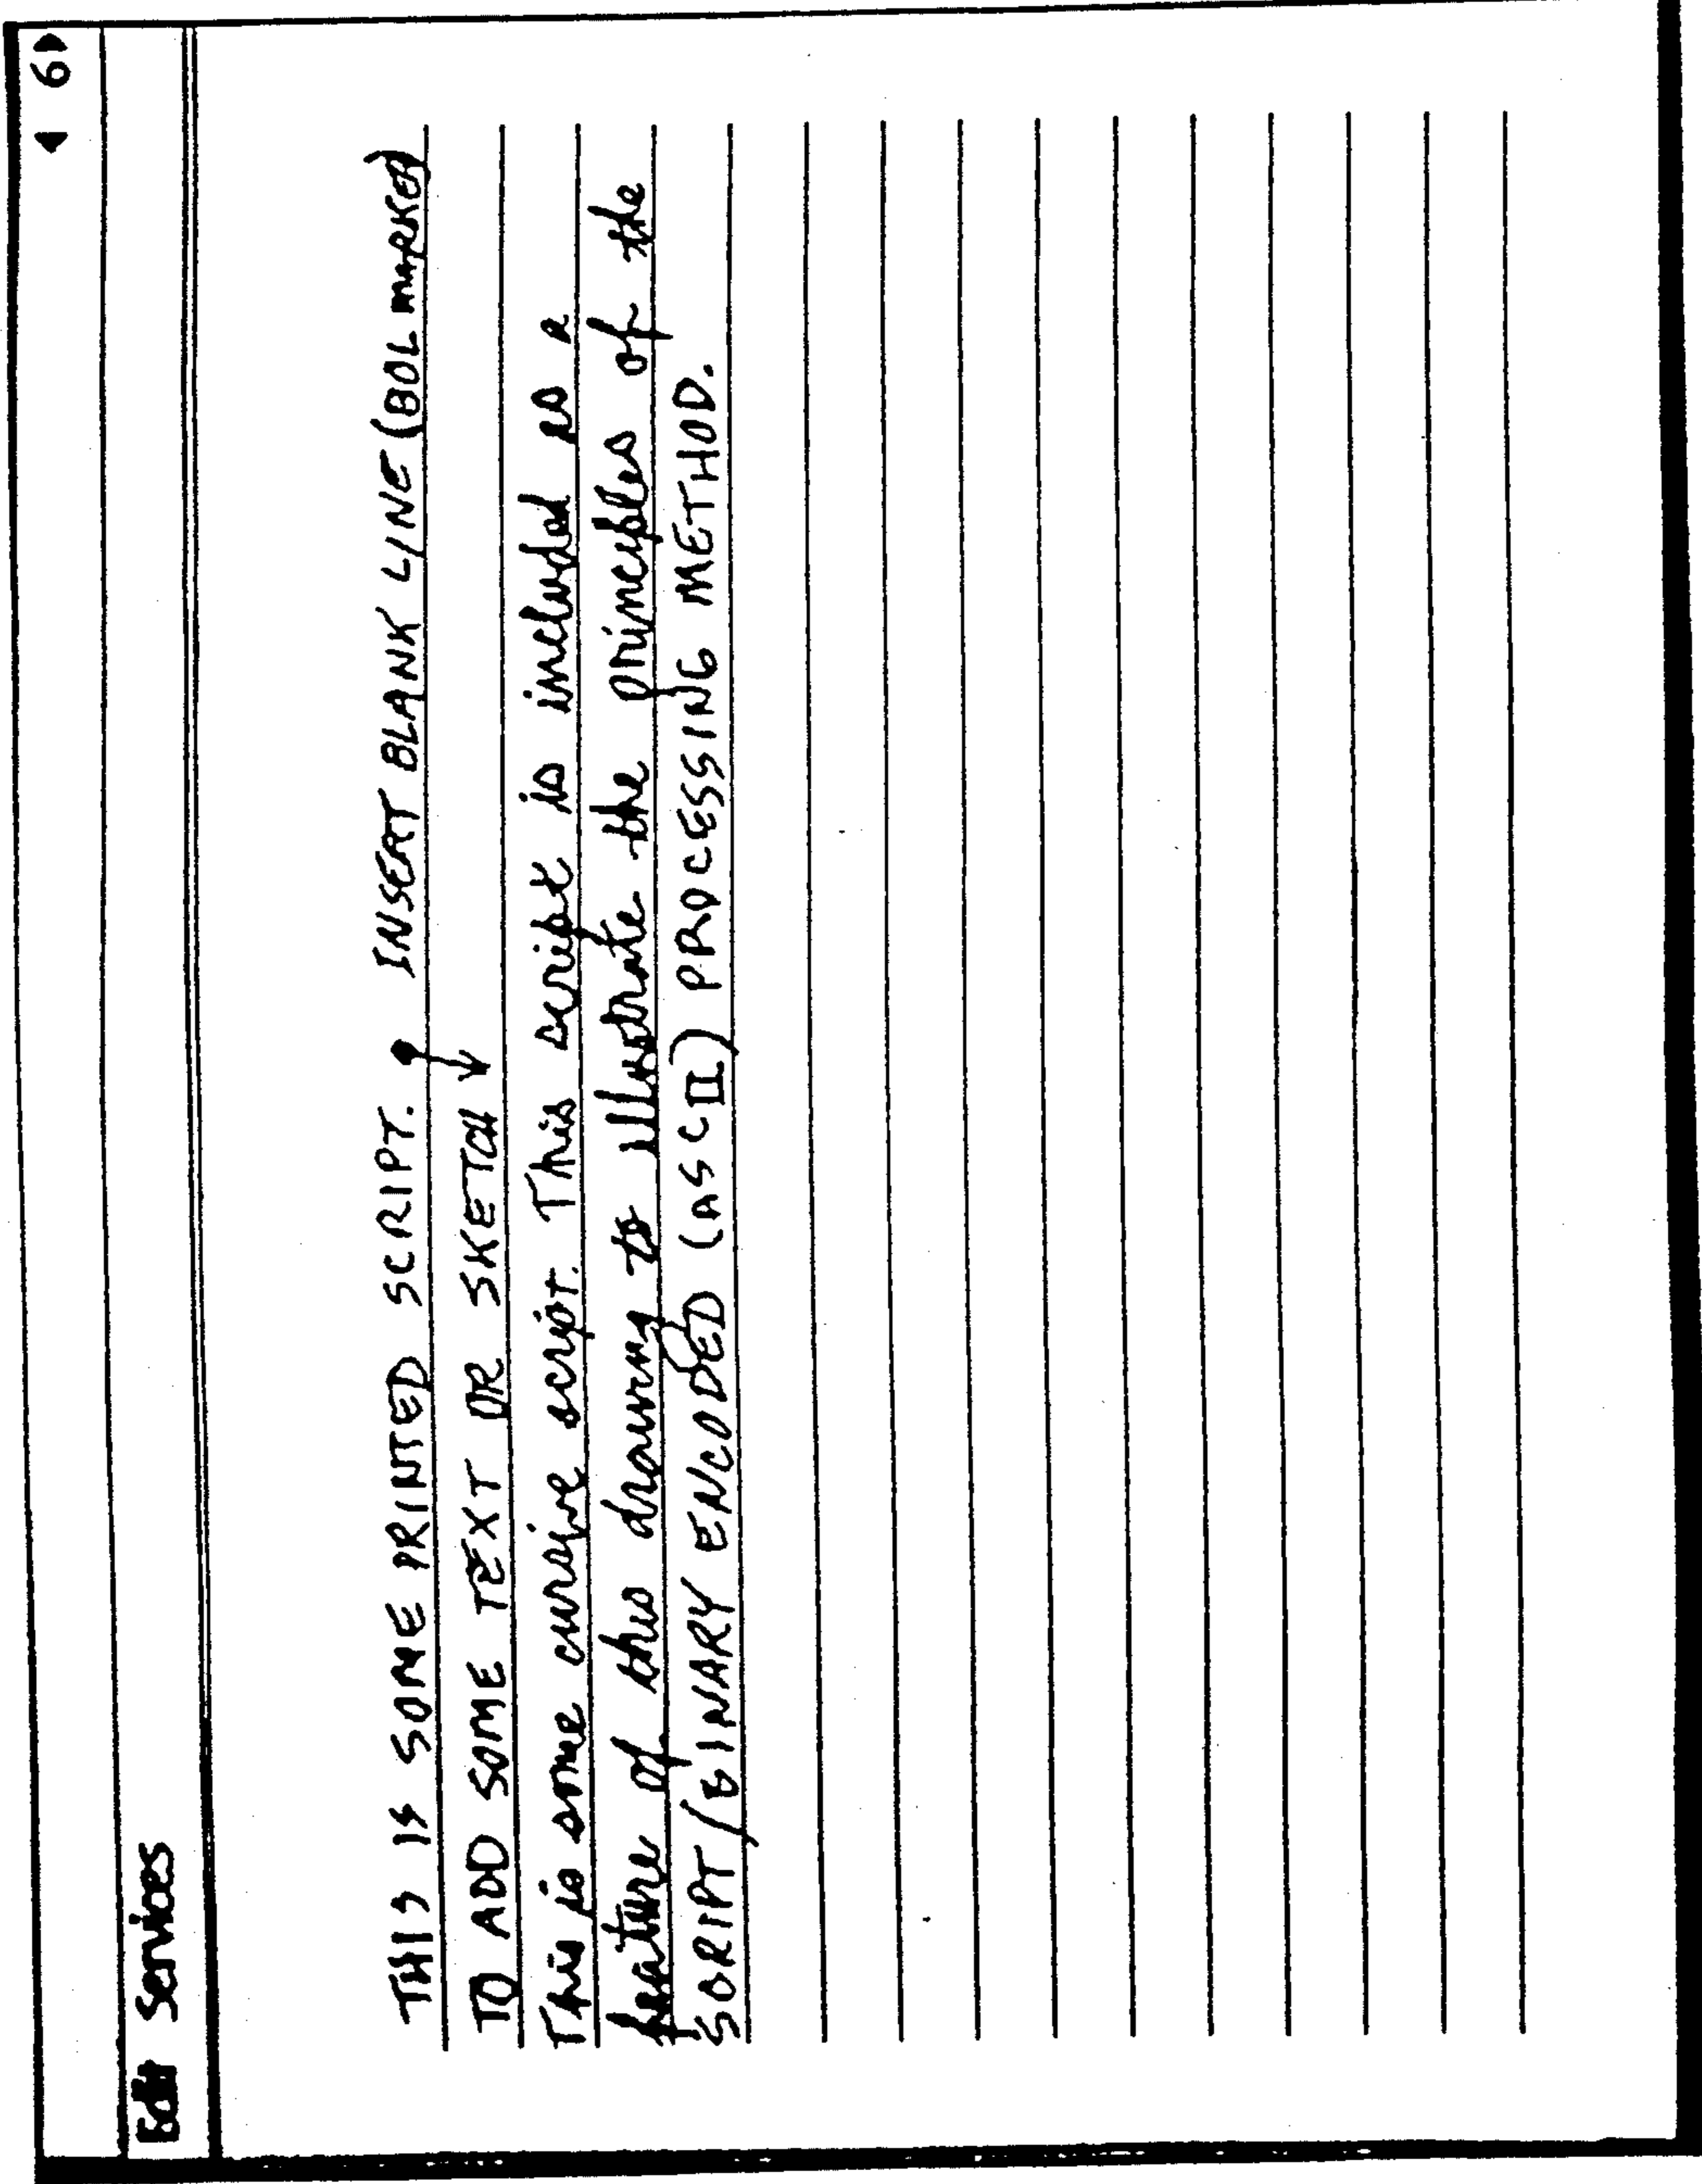 ◀ 6 ▶
Edit Services
THIS IS SOME PRINTED SCRIPT. INSERT BLANK LINE (BOL marked)
TO ADD SOME TEXT OR SKETCH
This is some cursive script. This script is included as a
feature of this drawing to illustrate the principles of the
SCRIPT/BINARY ENCODED (ASCII) PROCESSING METHOD.